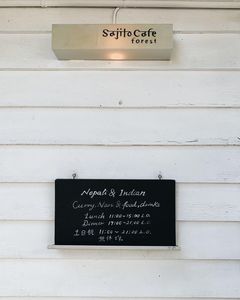 Sajilo Cafe
forest
Nepali & Indian
Curry, Nan & food, drinks
Lunch 11:00~15:00 L.O.
Dinner 17:00~21:00 L.O.
土日祝 11:00~21:00 L.O.
無休です。